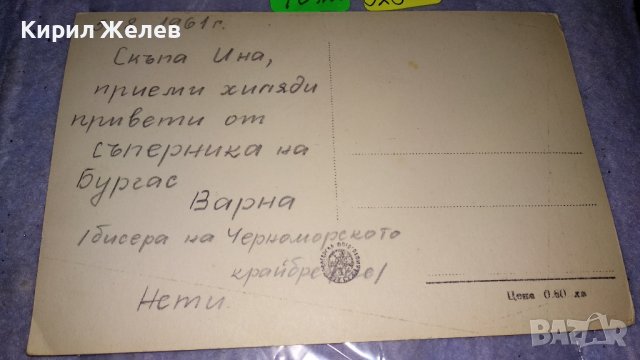 Кирил Желев
8 1961 г.
Скъпа Ина,
приеми хиляди
привети от
съперника на
Бургас
Варна
/бисера на Черноморското
крайбрежие/
Нети.
Цена 0.80 лв
BAZAR
bg